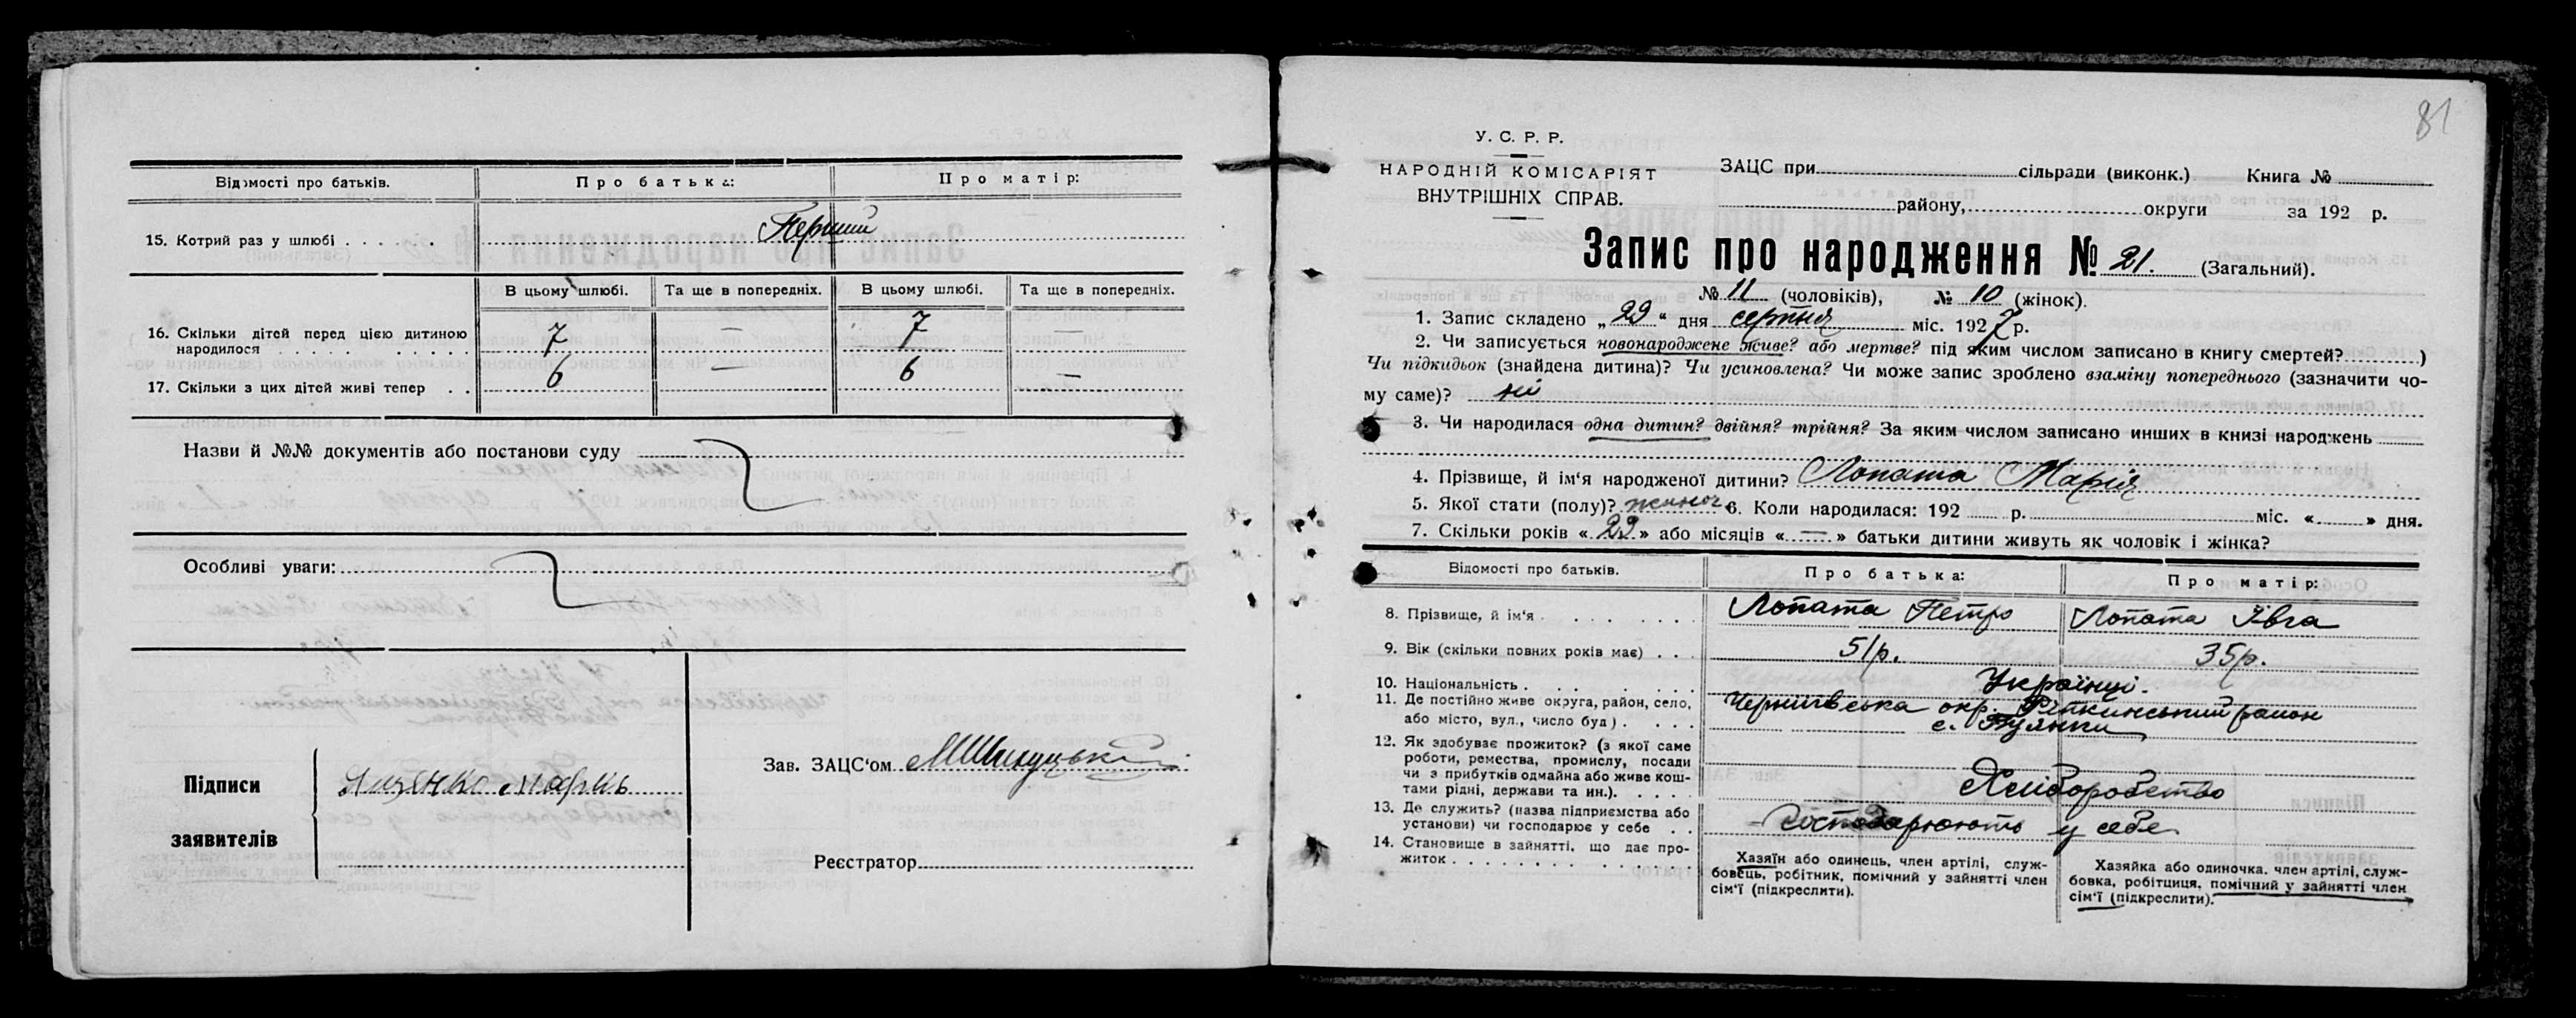 Відомості про батьків. Про батька: Про матір:
15. Котрий раз у шлюбі . . . . . . Перший
В цьому шлюбі. Та ще в попередніх. В цьому шлюбі. Та ще в попередніх.
16. Скільки дітей перед цією дитиною
народилося . . . . . . . . . . 7 — 7 —
17. Скільки з цих дітей живі тепер . . 6 — 6 —
Назви й №№ документів або постанови суду
Особливі уваги:
Підписи
заявителів
Яценко Маркъ
Зав. ЗАЦС‘ом
Реєстратор
81
У. С. Р. Р.
НАРОДНІЙ КОМІСАРІЯТ
ВНУТРІШНІХ СПРАВ.
ЗАЦС при сільради (виконк.) Книга №
району, округи за 192 р.
Запис про народження № 21. (Загальний).
№ 11 (чоловіків), № 10 (жінок).
1. Запис складено „29“ дня серпня міс. 1927 р.
2. Чи записується новонароджене живе? або мертве? під яким числом записано в книгу смертей? )
Чи підкидьок (знайдена дитина)? Чи усиновлена? Чи може запис зроблено взаміну попереднього (зазначити чо-
му саме)? ні
3. Чи народилася одна дитин? двійня? трійня? За яким числом записано инших в книзі народжень
4. Прізвище, й ім‘я народженої дитини? Лопата Марія
5. Якої стати (полу)? жиноч 6. Коли народилася: 192 р. міс. « » дня.
7. Скільки років «22» або місяців «—» батьки дитини живуть як чоловік і жінка?
Відомості про батьків. Про батька: Про матір:
8. Прізвище, й ім‘я . . . . . . . Лопата Петро Лопата Ївга
9. Вік (скільки повних років має) . . . 51р. 35р.
10. Національність . . . . . . . Українці.
11. Де постійно живе округа, район, село, Чернигівська окр. Ріпкинський район
або місто, вул., число буд) . . . . с.
12. Як здобуває прожиток? (з якої саме
роботи, ремества, промислу, посади
чи з прибутків одмайна або живе кош-
тами рідні, держави та ин.). . . . . Хліборобство
13. Де служить? (назва підприємства або
установи) чи господарює у себе . . Господарюють у себе
14. Становище в зайнятті, що дає про-
житок . . . . . . . . . . . . . .
Хазяїн або одинець, член артілі, служ-
бовець, робітник, помічний у зайнятті член
сім‘ї (підкреслити).
Хазяйка або одиночка. член артілі, служ-
бовка, робітциця, помічний у зайнятті член
сім‘ї (підкреслити).